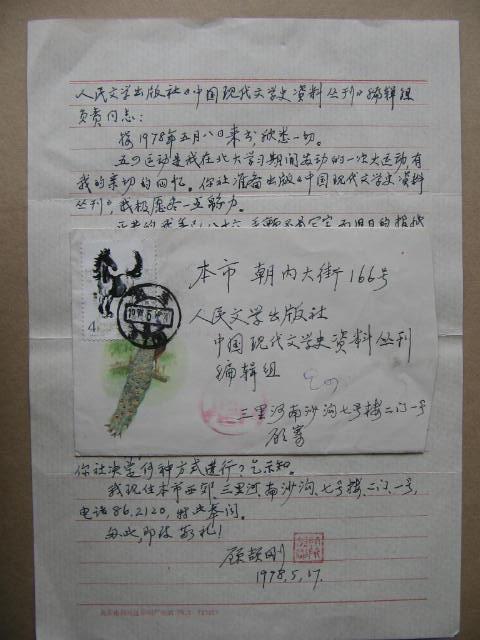 人民文学出版社《中国现代文学史资料丛刊》编辑组
负责同志：
接1978年五月八日来书，欣悉一切。
五四运动是我在北大学习期间发动的一次大运动，有
我的亲切的回忆。你社准备出版《中国现代文学史资料
丛刊》，我极愿尽一点努力。
4
本市 朝内大街166号
人民文学出版社
中国现代文学史资料丛刊
编辑组
三里河南沙沟七号楼二门一号
顾寄
你社决定何种方式进行？乞示知。
我现住本市西郊、三里河、南沙沟、七号楼、二门、一号，
电话86.2120，特此奉闻。
匆此，即致敬礼！
顾颉刚
1978.5.17.